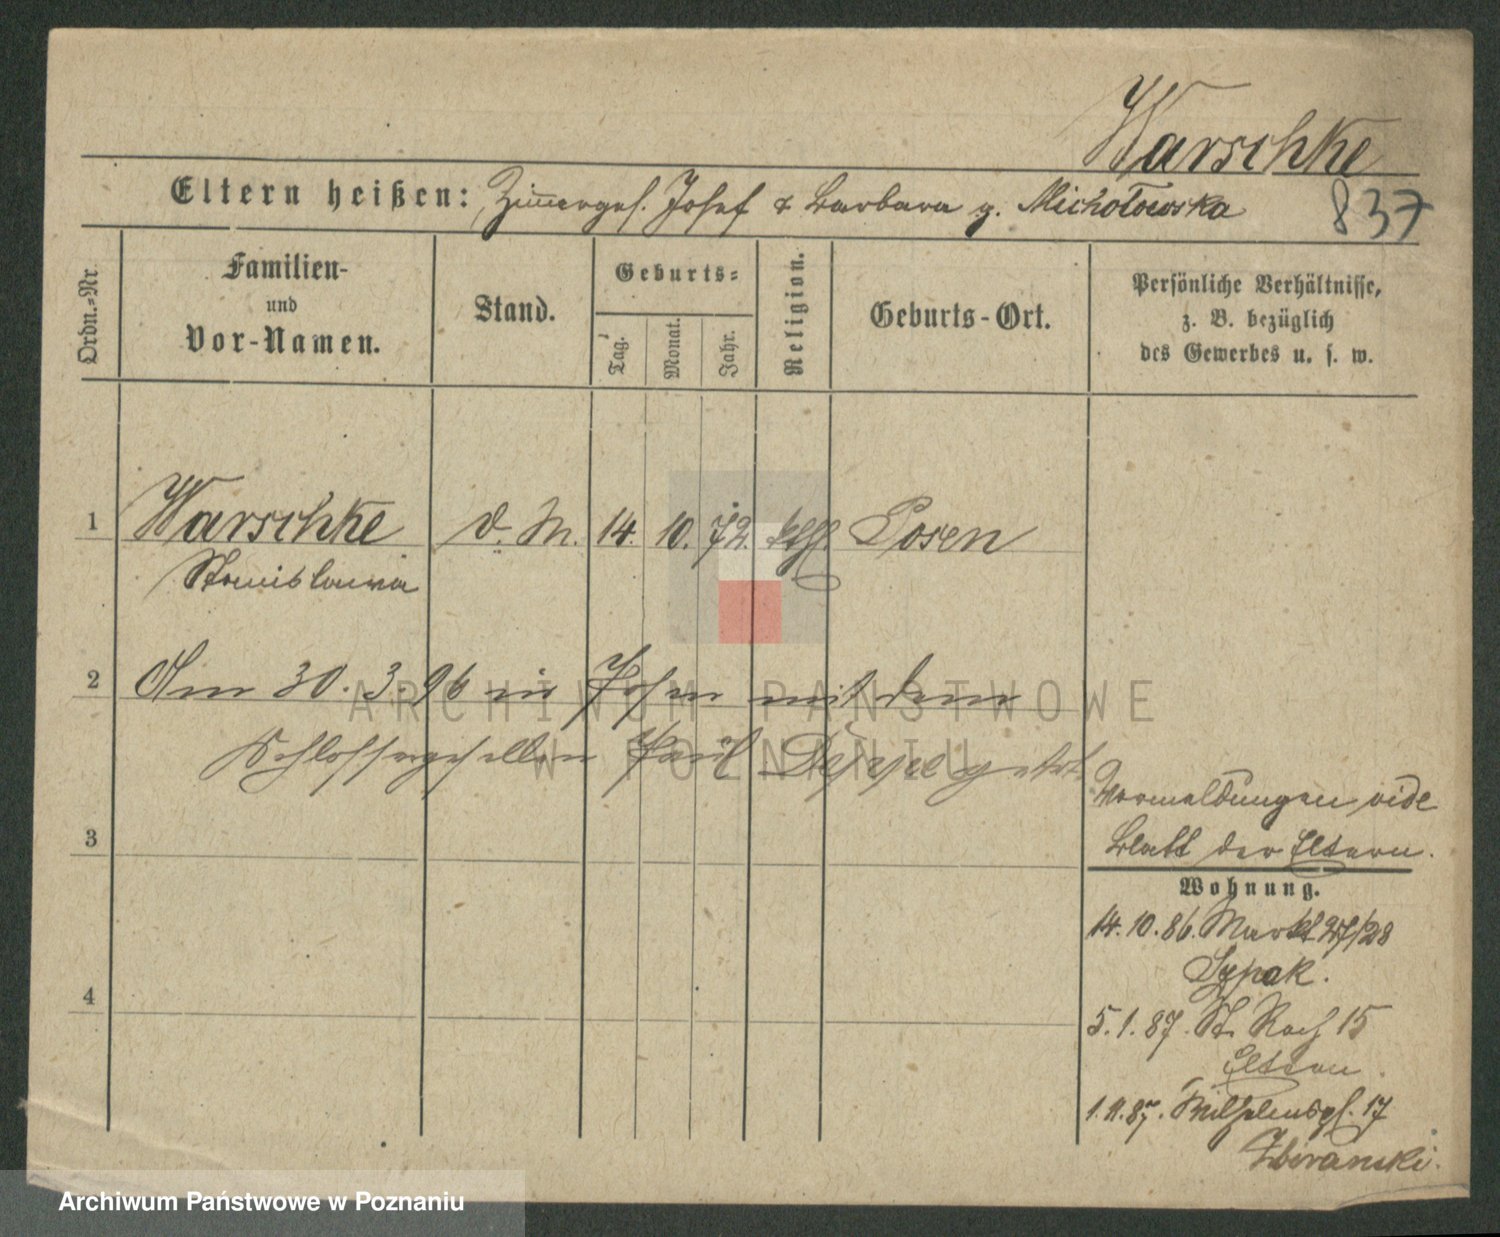 Warschke
Eltern heißen: Zimmerges. Josef & Barbara g. Michołowska
837
Ordn.=Nr.
Familien-
und
Vor-Namen.
Stand.
Geburts=
Tag.
Monat.
Jahr.
Religion.
Geburts-Ort.
Persönliche Verhältnisse,
z. B. bezüglich
des Gewerbes u. s. w.
1 Warschke d. M. 14. 10. 72. kth. Posen
Stanislawa
2 Am 30. 3. 96 in Posen mit dem
Schlossergesellen Paul
3
Vormeldungen vide
Blatt der Eltern.
Wohnung.
14. 10. 86. Markt 27/28
Sypak.
4
5. 1. 87. St. Roch 15
Eltern.
1. 11. 87. Wilhelmspl. 17
ARCHIWUM PAŃSTWOWE
W POZNANIU
Archiwum Państwowe w Poznaniu